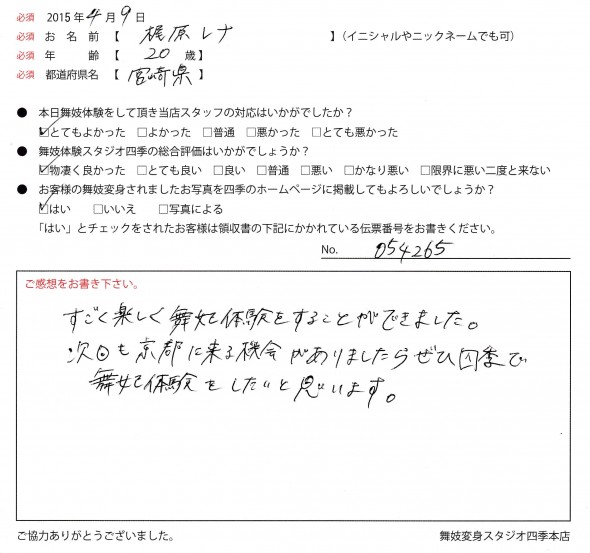 必須 2015年4月9日
必須 お名前【 梶原レナ 】(イニシャルやニックネームでも可)
必須 年齢【 20歳】
必須 都道府県名【 宮崎県】
● 本日舞妓体験をして頂き当店スタッフの対応はいかがでしたか?
☑とてもよかった □よかった □普通 □悪かった □とても悪かった
● 舞妓体験スタジオ四季の総合評価はいかがでしょうか?
☑物凄く良かった □とても良い □良い □普通 □悪い □かなり悪い □限界に悪い二度と来ない
● お客様の舞妓変身されましたお写真を四季のホームページに掲載してもよろしいでしょうか?
☑はい □いいえ □写真による
「はい」とチェックをされたお客様は領収書の下記にかかれている伝票番号をお書きください。
No. 054265
ご感想をお書き下さい。
すごく楽しく舞妓体験をすることができました。
次回も京都に来る機会がありましたらぜひ四季で
舞妓体験をしたいと思います。
ご協力ありがとうございました。 舞妓変身スタジオ四季本店